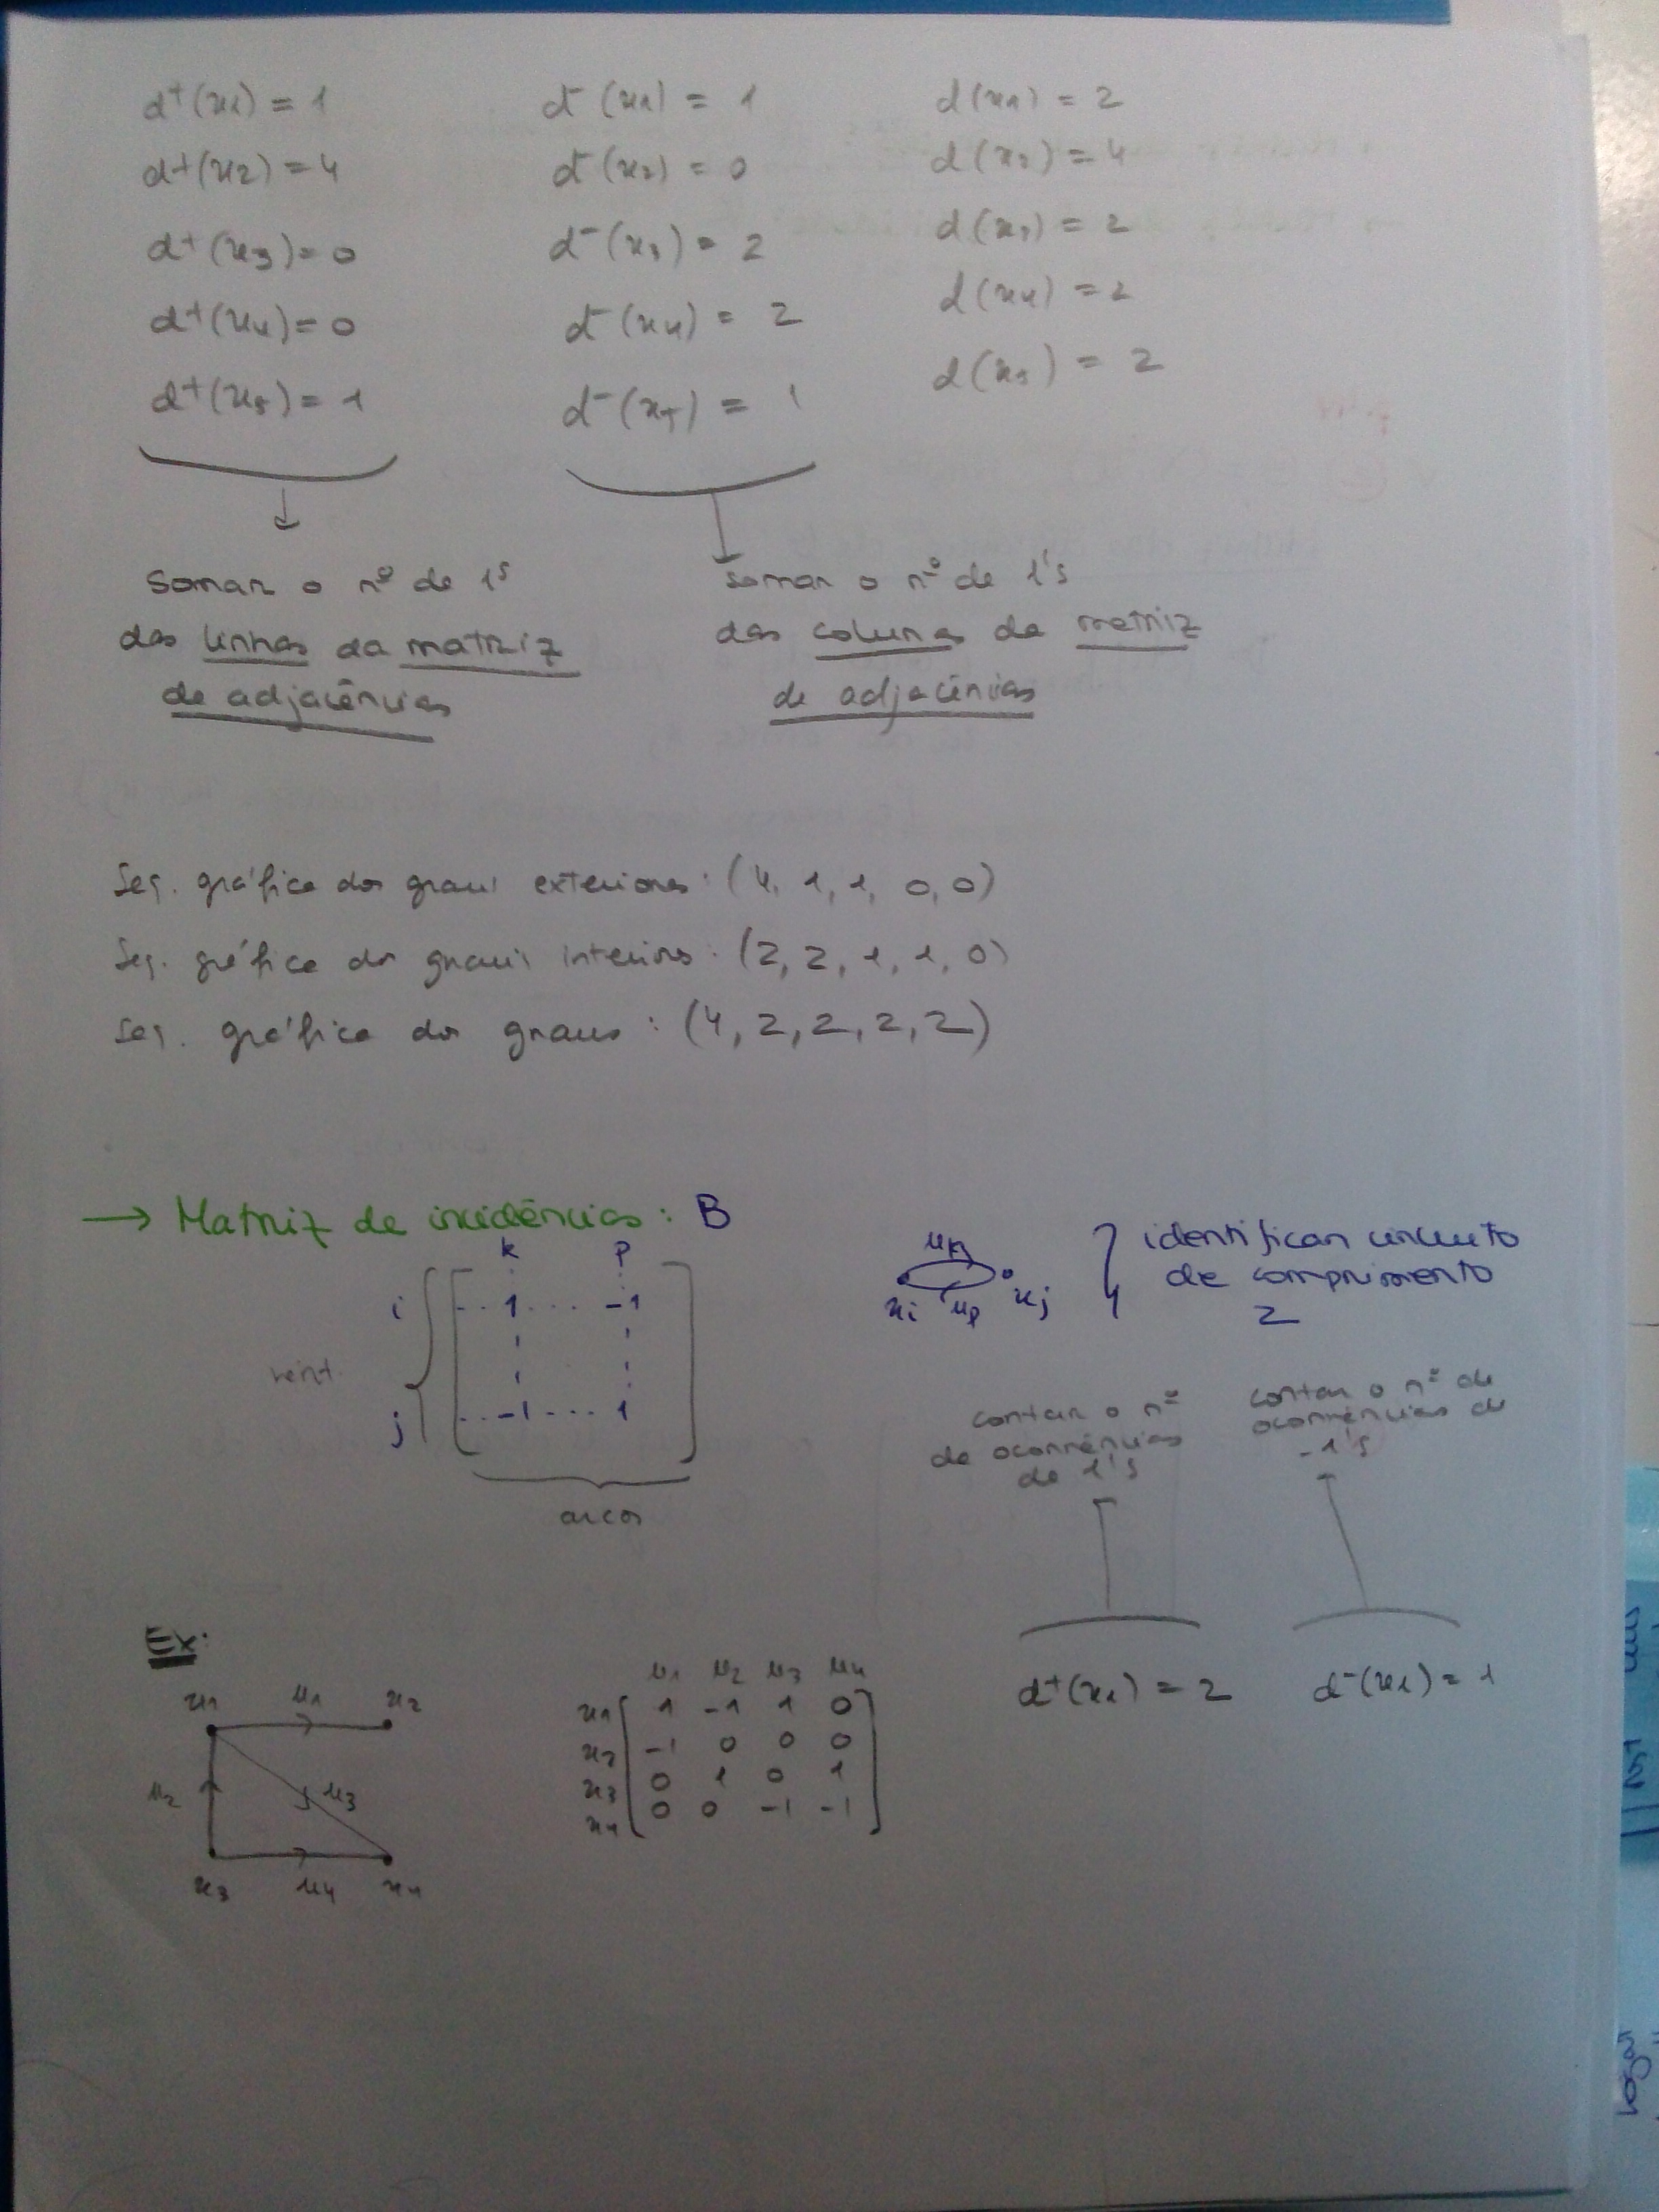 d⁺(x₁) = 1
d⁺(x₂) = 4
d⁺(x₃) = 0
d⁺(x₄) = 0
d⁺(x₅) = 1
Somar o nº de 1ˢ
das linhas da matriz
de adjacências
d⁻(x₁) = 1
d⁻(x₂) = 0
d⁻(x₃) = 2
d⁻(x₄) = 2
d⁻(x₅) = 1
somar o nº de 1's
das colunas da matriz
de adjacências
d(x₁) = 2
d(x₂) = 4
d(x₃) = 2
d(x₄) = 2
d(x₅) = 2
Seq. gráfica dos graus exteriores: (4, 1, 1, 0, 0)
Seq. gráfica dos graus interiores: (2, 2, 1, 1, 0)
Seq. gráfica dos graus: (4, 2, 2, 2, 2)
→ Matriz de incidências: B
k p
i ... 1 ... -1
vért.
j ... -1 ... 1
arcos
uk
xi up xj
identificar circuito
de comprimento
2
contar o nº
de ocorrências
de 1's
contar o nº de
ocorrências de
-1's
d⁺(x₁) = 2
d⁻(x₁) = 1
Ex:
x₁ u₁ x₂
u₂ u₃
x₃ u₄ x₄
u₁ u₂ u₃ u₄
x₁ 1 -1 1 0
x₂ -1 0 0 0
x₃ 0 1 0 1
x₄ 0 0 -1 -1